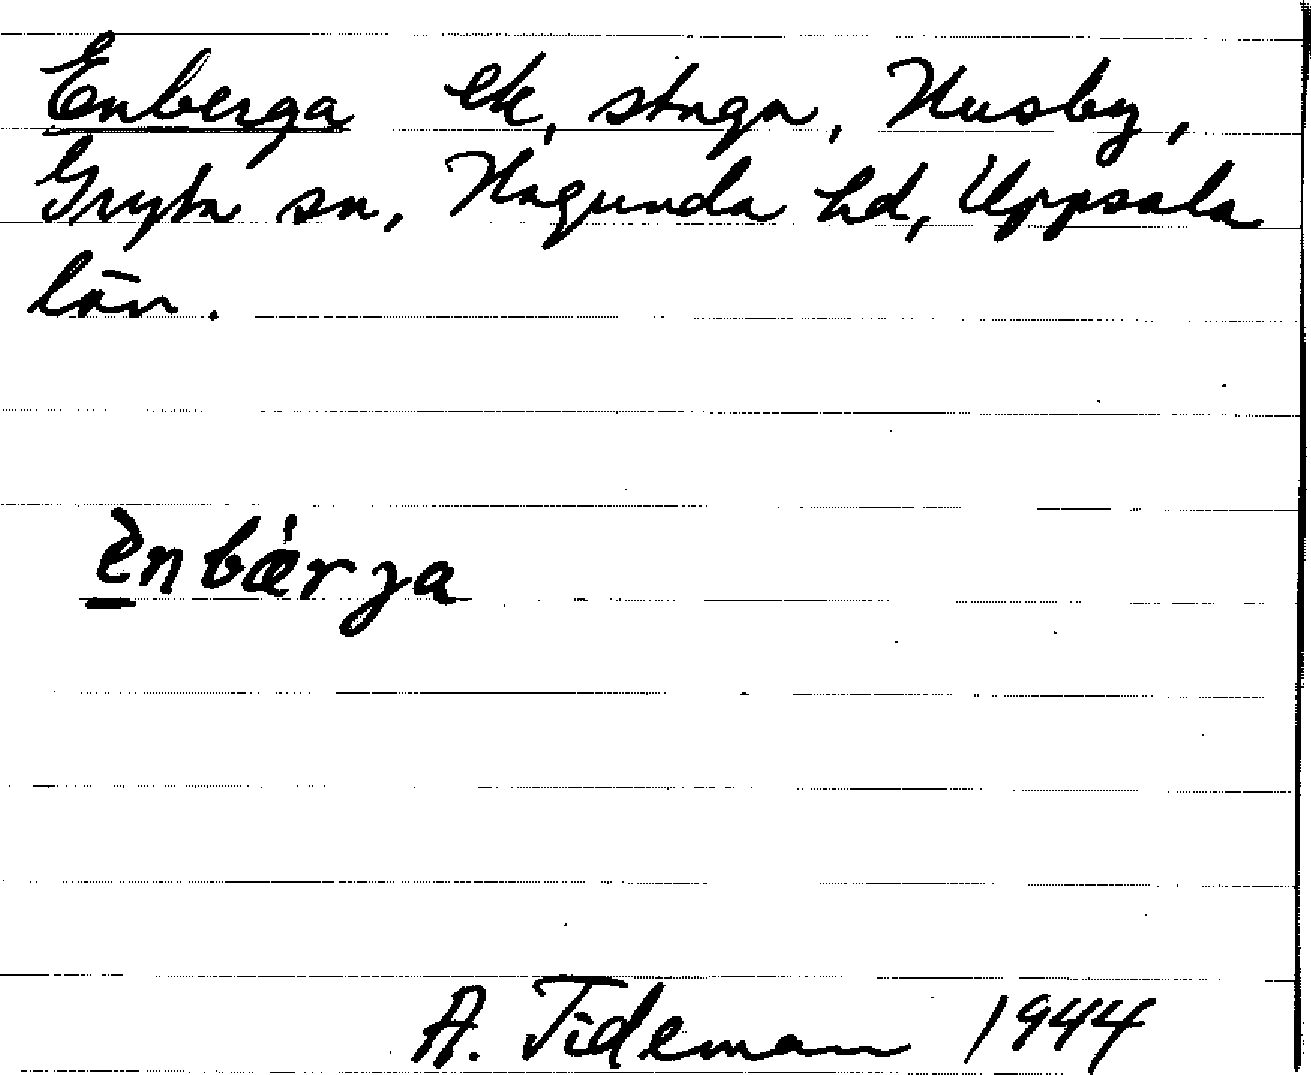 Enberga ek, stuga, Husby,
Gryta sn, Hagunda hd, Uppsala
län.
ènbǽrja
A. Tideman 1944